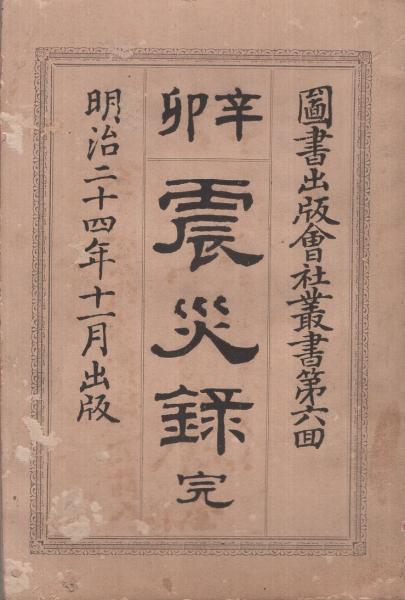 圖書出版會社叢書第六回
辛卯
震災録完
明治二十四年十一月出版